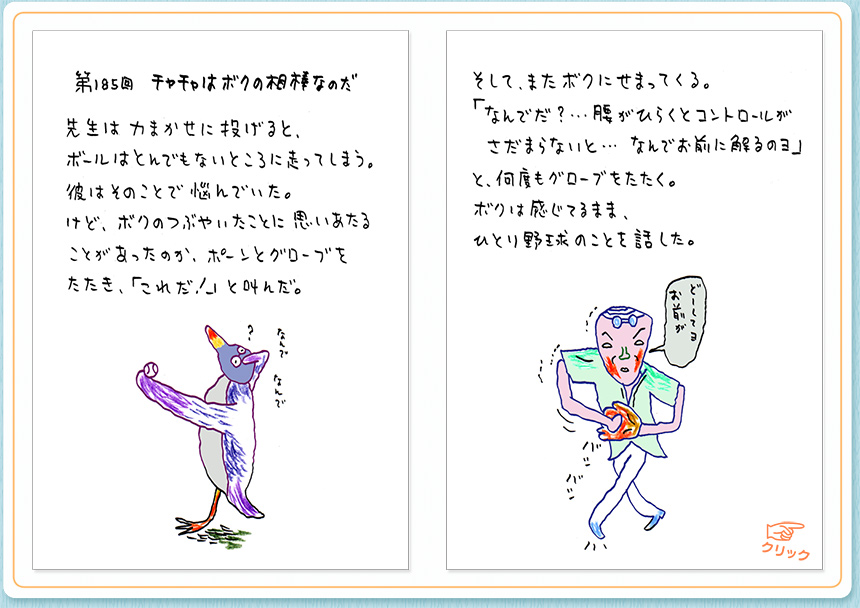 第185回 チャチャはボクの相棒なのだ
先生は力まかせに投げると、
ボールはとんでもないところに走ってしまう。
彼はそのことで悩んでいた。
けど、ボクのつぶやいたことに思いあたる
ことがあったのか、ポーンとグローブを
たたき、「これだ!」と叫んだ。
?
なんで
なんで
そして、またボクにせまってくる。
「なんでだ?…腰がひらくとコントロールが
さだまらないと… なんでお前に解るのヨ」
と、何度もグローブをたたく。
ボクは感じてるまま、
ひとり野球のことを話した。
どーしてヨ
お前が
バン
バン
クリック